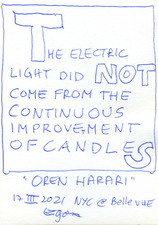 THE ELECTRIC
LIGHT DID NOT
COME FROM THE
CONTINUOUS
IMPROVEMENT
OF CANDLES
"OREN HARARI"
17 III 2021 NYC @ BellevUE